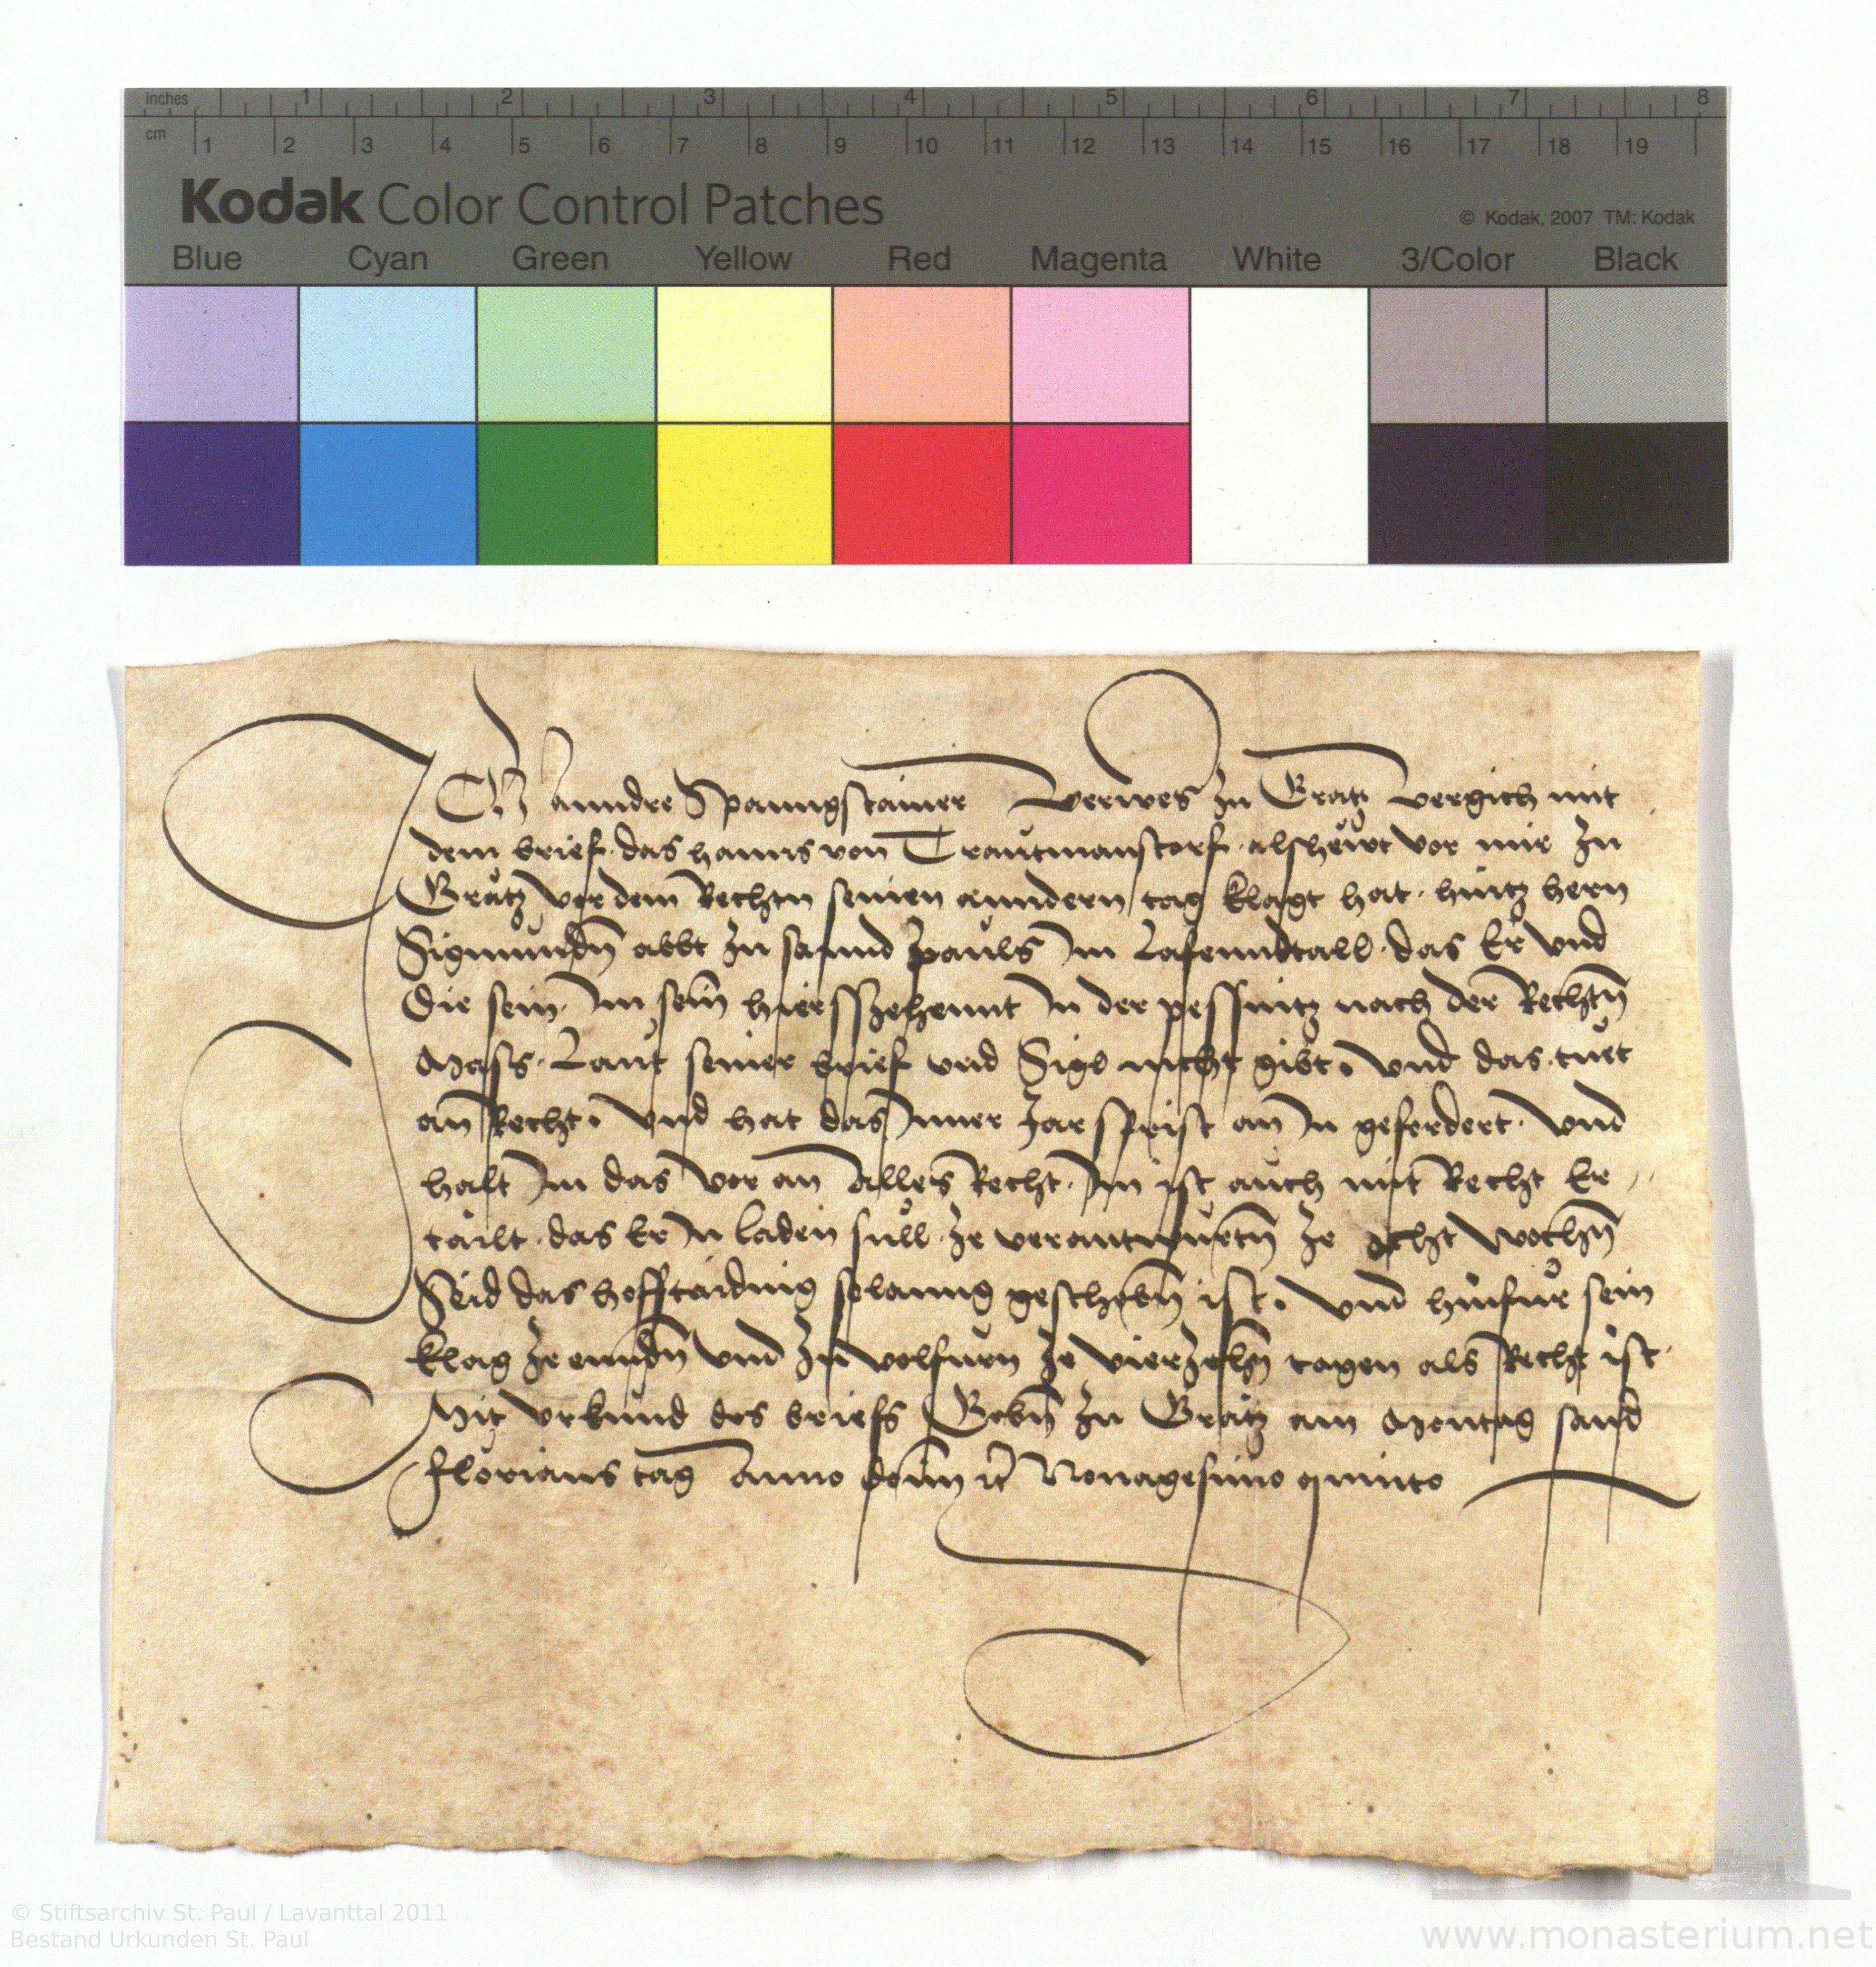 inches 1 2 3 4 5 6 7 8
cm 1 2 3 4 5 6 7 8 9 10 11 12 13 14 15 16 17 18 19
Kodak Color Control Patches
© Kodak, 2007 TM: Kodak
Blue Cyan Green Yellow Red Magenta White 3/Color Black
Ich Anndre Spanngstainer verwes zu Gratz vergich mit
dem brief · das hanns von Trautmanstorf · als hewt vor mir zu
Grátz vor dem Rechtn seinen anndern tag klagt hat · hintz hern
Sigmundn̄ abbt zu sannd pauls Im Lafenndtall · das Er vnd
die sein · Im sein hierszehennt In der pessnitz nach der Rechtn̄
Mass · Laut seiner brief vnd Sigl nicht gibt · vnd das tuet
an Recht · vnd hat das Inner Jarsfrist an In gefordert · vnd
halt Im das vor an alles Recht · Im ist auch mit Recht Er
tailt · das Er In laden sull · ze verantwurtn̄ ze acht wochn̄
Seid das hofftaiding solanng geschobn̄ ist · vnd hinfur sein
klag ze enndn̄ vnd zu volfurn ze vierzehn̄ tagen als Recht ist ·
Mit vrkund des briefs Gebn̄ zu Grátz am Montag sand
Florians tag Anno dom̄ ꝛc Nonagesimo quinto
© Stiftsarchiv St. Paul / Lavanttal 2011
Bestand Urkunden St. Paul
www.monasterium.net